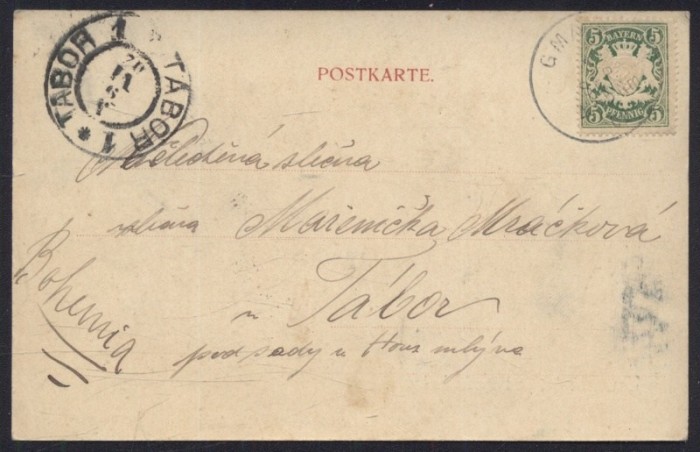 TÁBOR 1 TÁBOR 1
POSTKARTE.
GM
5 BAYERN 5
5 PFENNIG 5
slečna
slečna Mařenička Mráčková
Tábor
pod sady u
Bohemia